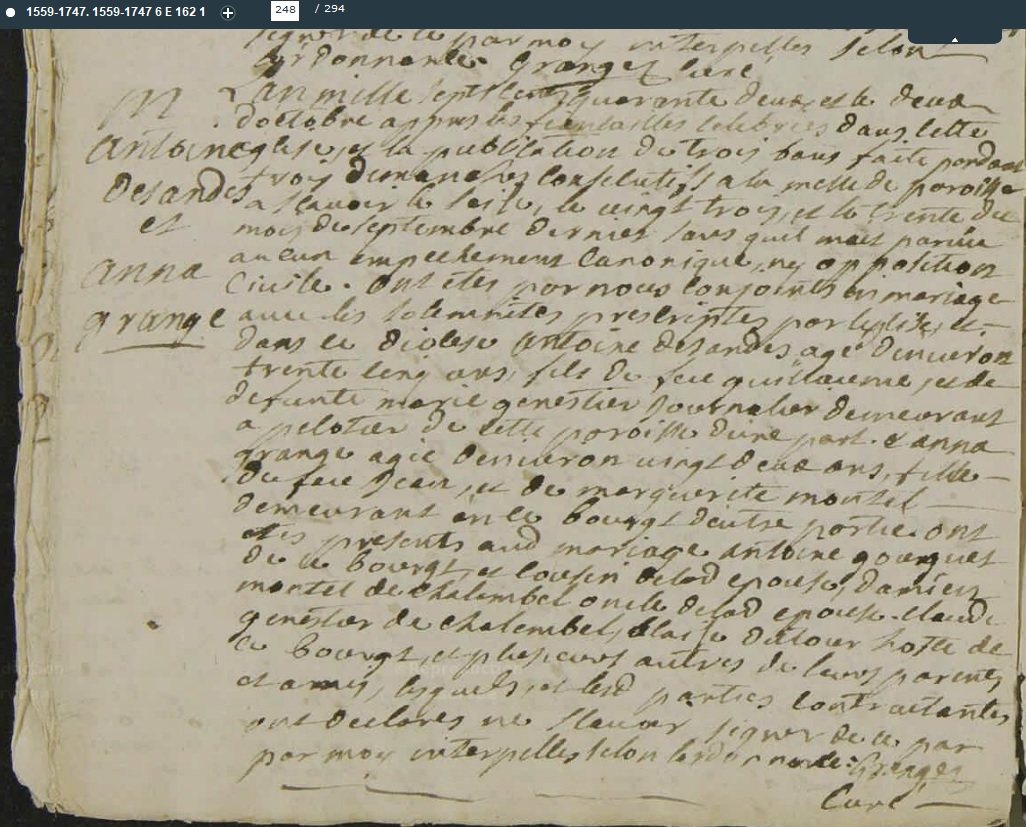 1559-1747. 1559-1747 6 E 162 1 248 / 294
signer de ce par moy interpelles selon
l'ordonnance. Granges curé
M
Antoine
desandes
et
anna
grange
L'an mille sept cent quarante deux, et le deux
d'octobre apprès les fiansailles celebrées dans cette
eglise, et la publication de trois bans faite pendant
trois dimanches consecutifs a la messe de paroisse
a scavoir le seise, le vingt trois, et le trente du
mois de septembre dernier sans quil m'ait parüe
aucun empechement Canonique, ny opposition
Civile. Ont étés par nous conjoints en mariage
avec les solemnites prescriptes par leglise, et
dans ce diocese Antoine desandes agé denviron
trente cinq ans, fils de feu guillaume, et de
defunte marie genestier journalier demeurant
a pelotier de cette paroisse d'une part. & anna
grange agée denviron vingt deux ans, fille
du feu Jean, et de marguerite montel
demeurant en ce bourgt d'autre partie ont
etés presents aud mariage antoine gourguet
de ce bourgt, et cousin de lad epouse, damien
montel de chalembel oncle de lad epouse. claude
genestier de chalembel, blaise dutour hotte de
ce bourgt, et plusieurs autres de leurs parents
et amis, lesquels, et lesd parties contractantes
ont declarés ne scavoir signer de ce par
par moy interpelles selon lordonnance. Granges
Curé